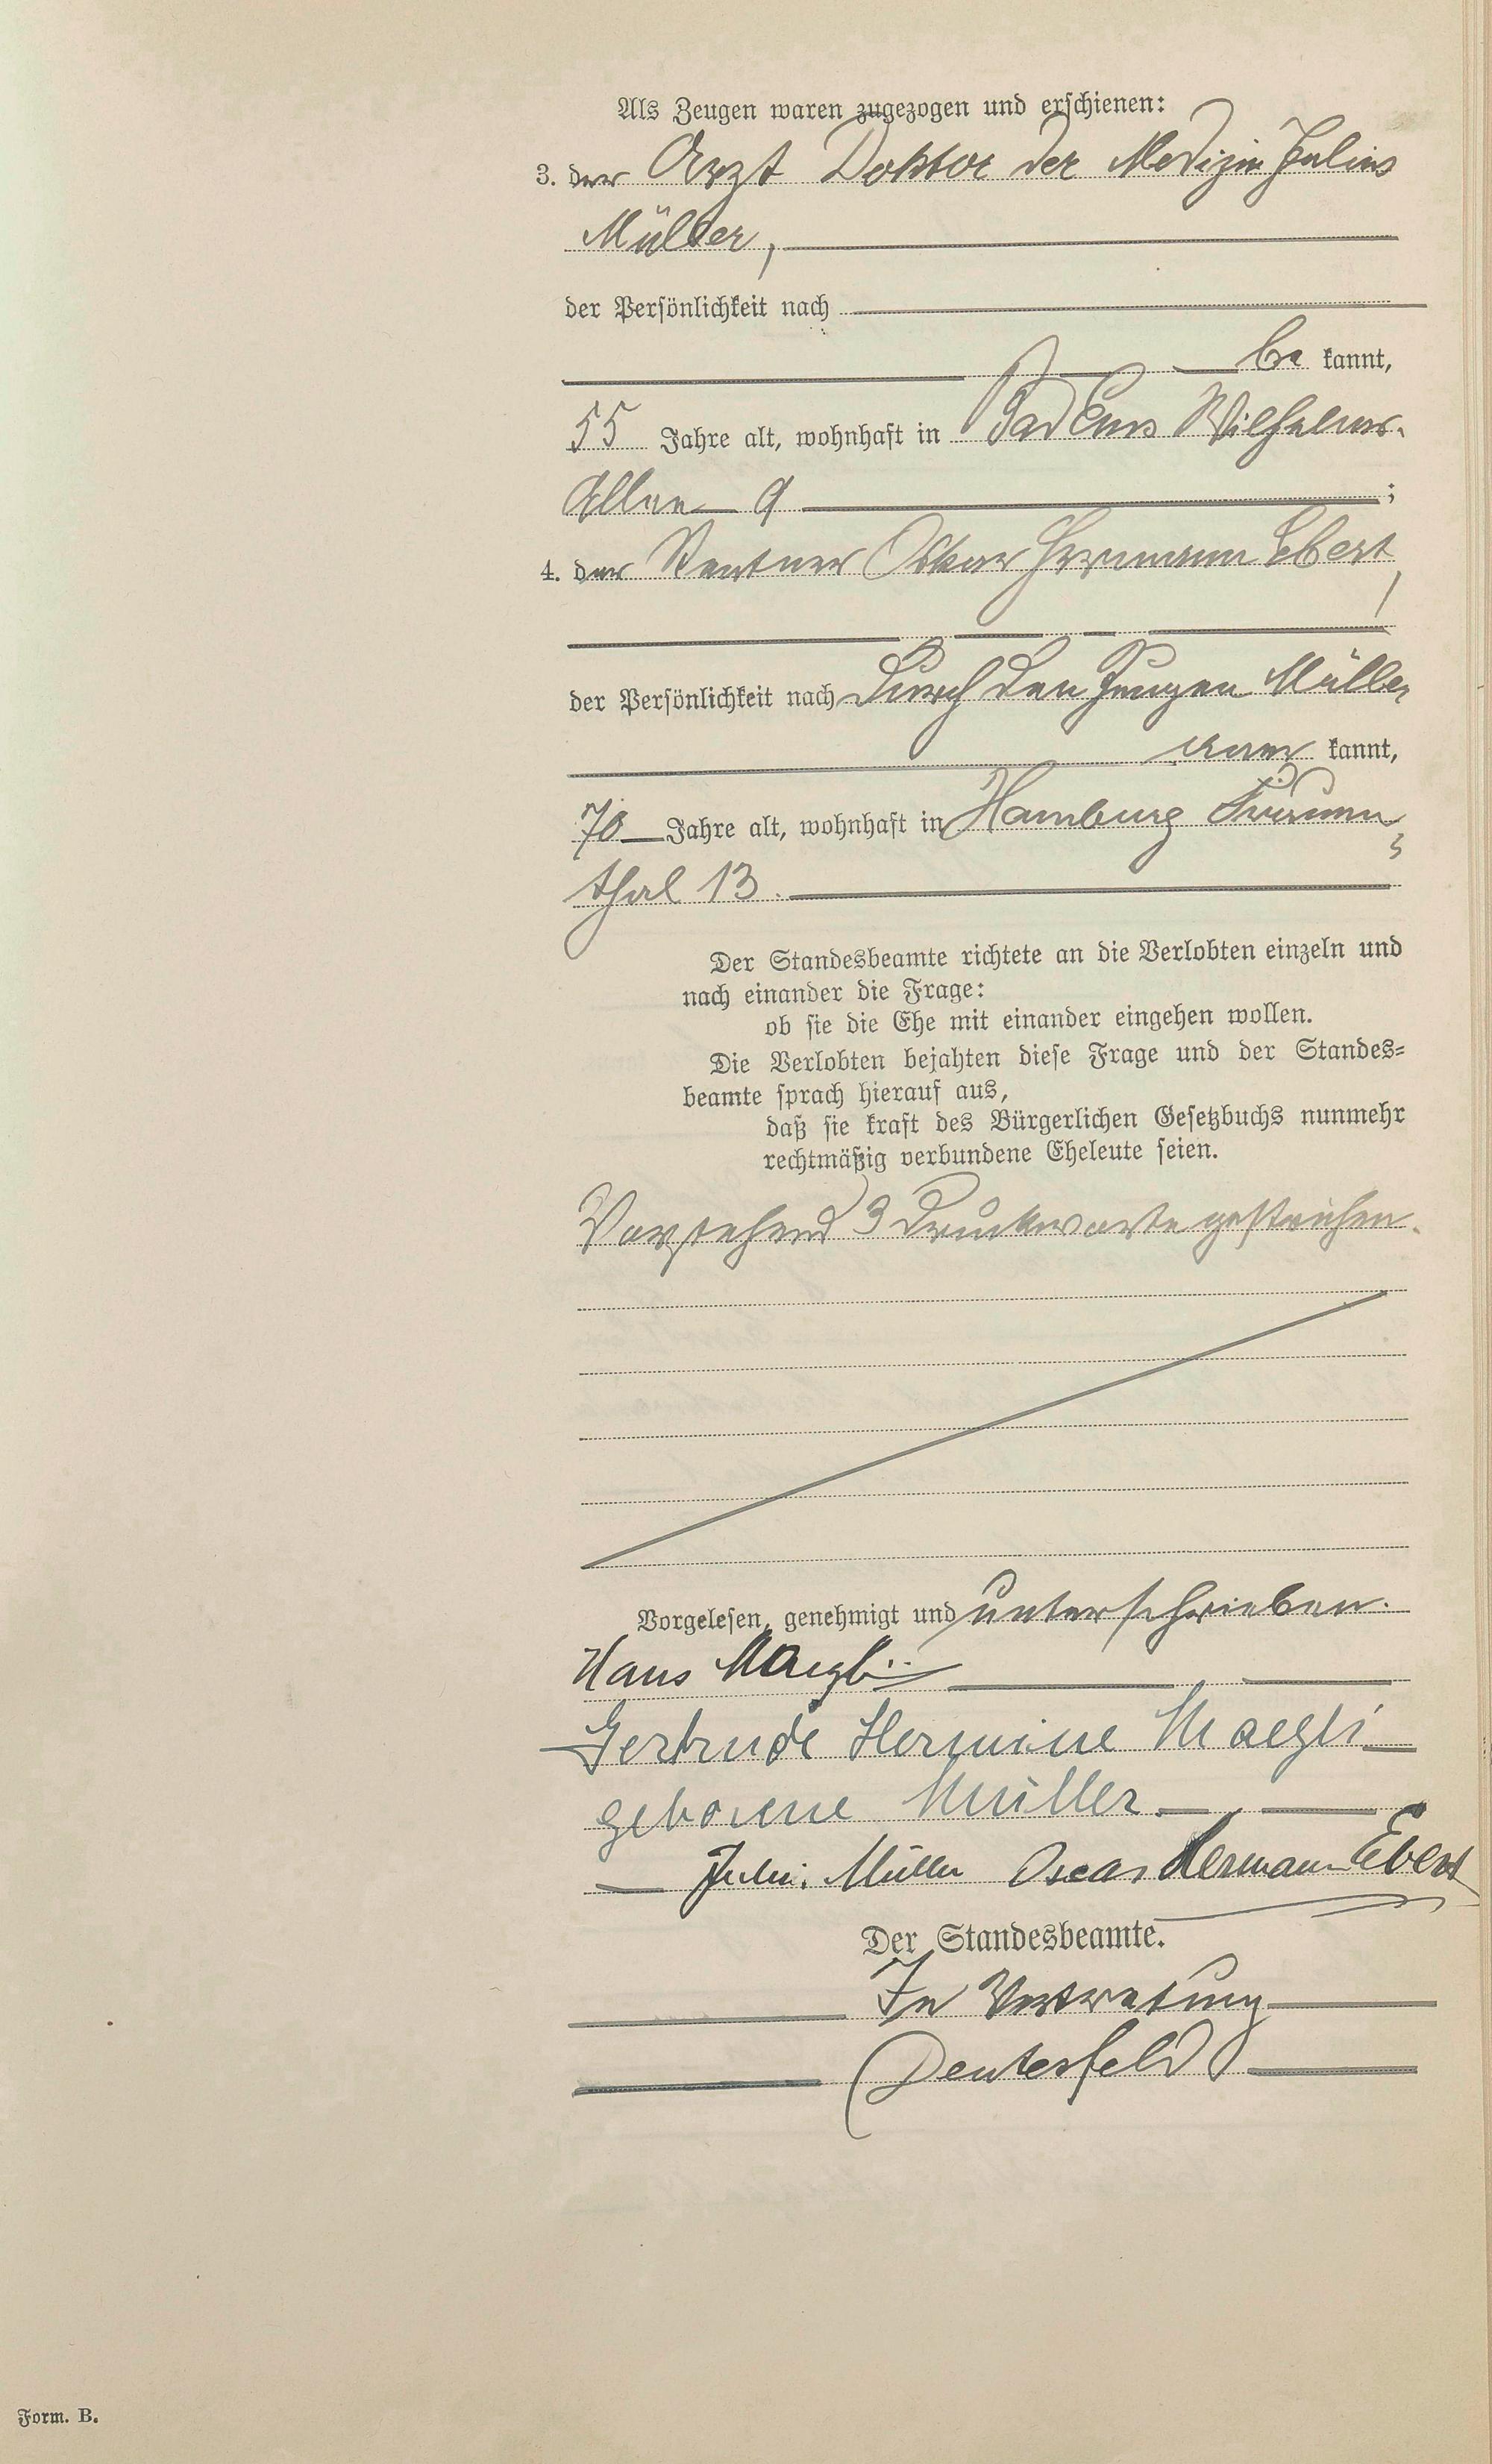 Als Zeugen waren zugezogen und erschienen:
3. der Arzt Doktor der Medizin Julius
Müller,
der Persönlichkeit nach
be kannt,
55 Jahre alt, wohnhaft in Bad Ems Wilhelms-
Allee 9 ;
4. der Rentner Oskar Hermann Ebert,
der Persönlichkeit nach durch den Zeugen Müller
aner kannt,
70 Jahre alt, wohnhaft in Hamburg
thal 13.
Der Standesbeamte richtete an die Verlobten einzeln und
nach einander die Frage:
ob sie die Ehe mit einander eingehen wollen.
Die Verlobten bejahten diese Frage und der Standes=
beamte sprach hierauf aus,
daß sie kraft des Bürgerlichen Gesetzbuchs nunmehr
rechtmäßig verbundene Eheleute seien.
Vorstehend 3 Druckworte gestrichen.
Vorgelesen, genehmigt und unterschrieben.
Hans Maegli
Gertrude Hermine Maegli
geborene Müller.
Julius Müller Oscar Hermann Ebert
Der Standesbeamte.
In Vertretung
Deutesfeld
Form. B.